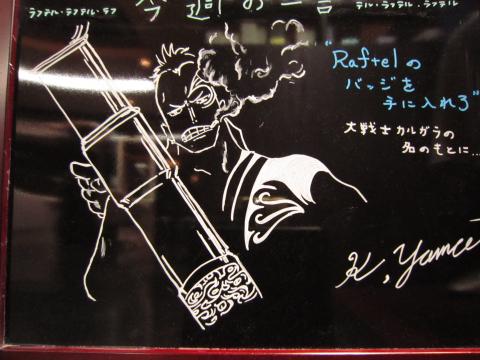 ラフテル・ラフテル・ラフ
今週の一言
テル・ラフテル・ラフテル
"Raftelの
バッジを
手に入れろ"
大戦士カルガラの
名のもとに…
K, Yamce